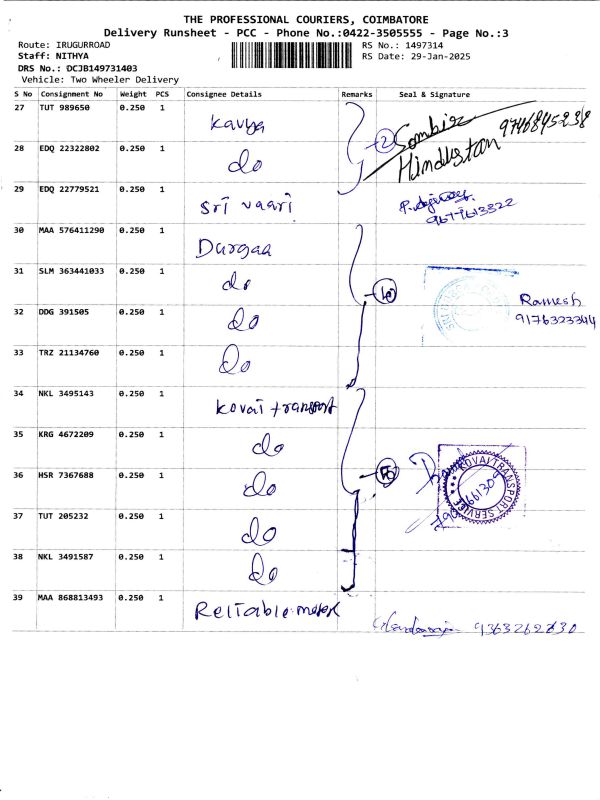 THE PROFESSIONAL COURIERS, COIMBATORE
Delivery Runsheet - PCC - Phone No.:0422-3505555 - Page No.:3
Route: IRUGURROAD RS No.: 1497314
Staff: NITHYA RS Date: 29-Jan-2025
DRS No.: DCJB149731403
Vehicle: Two Wheeler Delivery
S No Consignment No Weight PCS Consignee Details Remarks Seal & Signature
27 TUT 989650 0.250 1 Kavya
Sombir 9746845238
28 EDQ 22322802 0.250 1 do 2 Hindustan
29 EDQ 22779521 0.250 1 Sri vaari
9677613322
30 MAA 576411290 0.250 1 Durgaa
31 SLM 363441033 0.250 1 do
Ramesh
32 DDG 391505 0.250 1 do 9176323344
33 TRZ 21134760 0.250 1 do
34 NKL 3495143 0.250 1 Kovai transport
35 KRG 4672209 0.250 1 do
36 HSR 7367688 0.250 1 do
KOVAI TRANSPORT SERVICE
37 TUT 205232 0.250 1 do
38 NKL 3491587 0.250 1 do
39 MAA 868813493 0.250 1 Reliable motor
9363262830